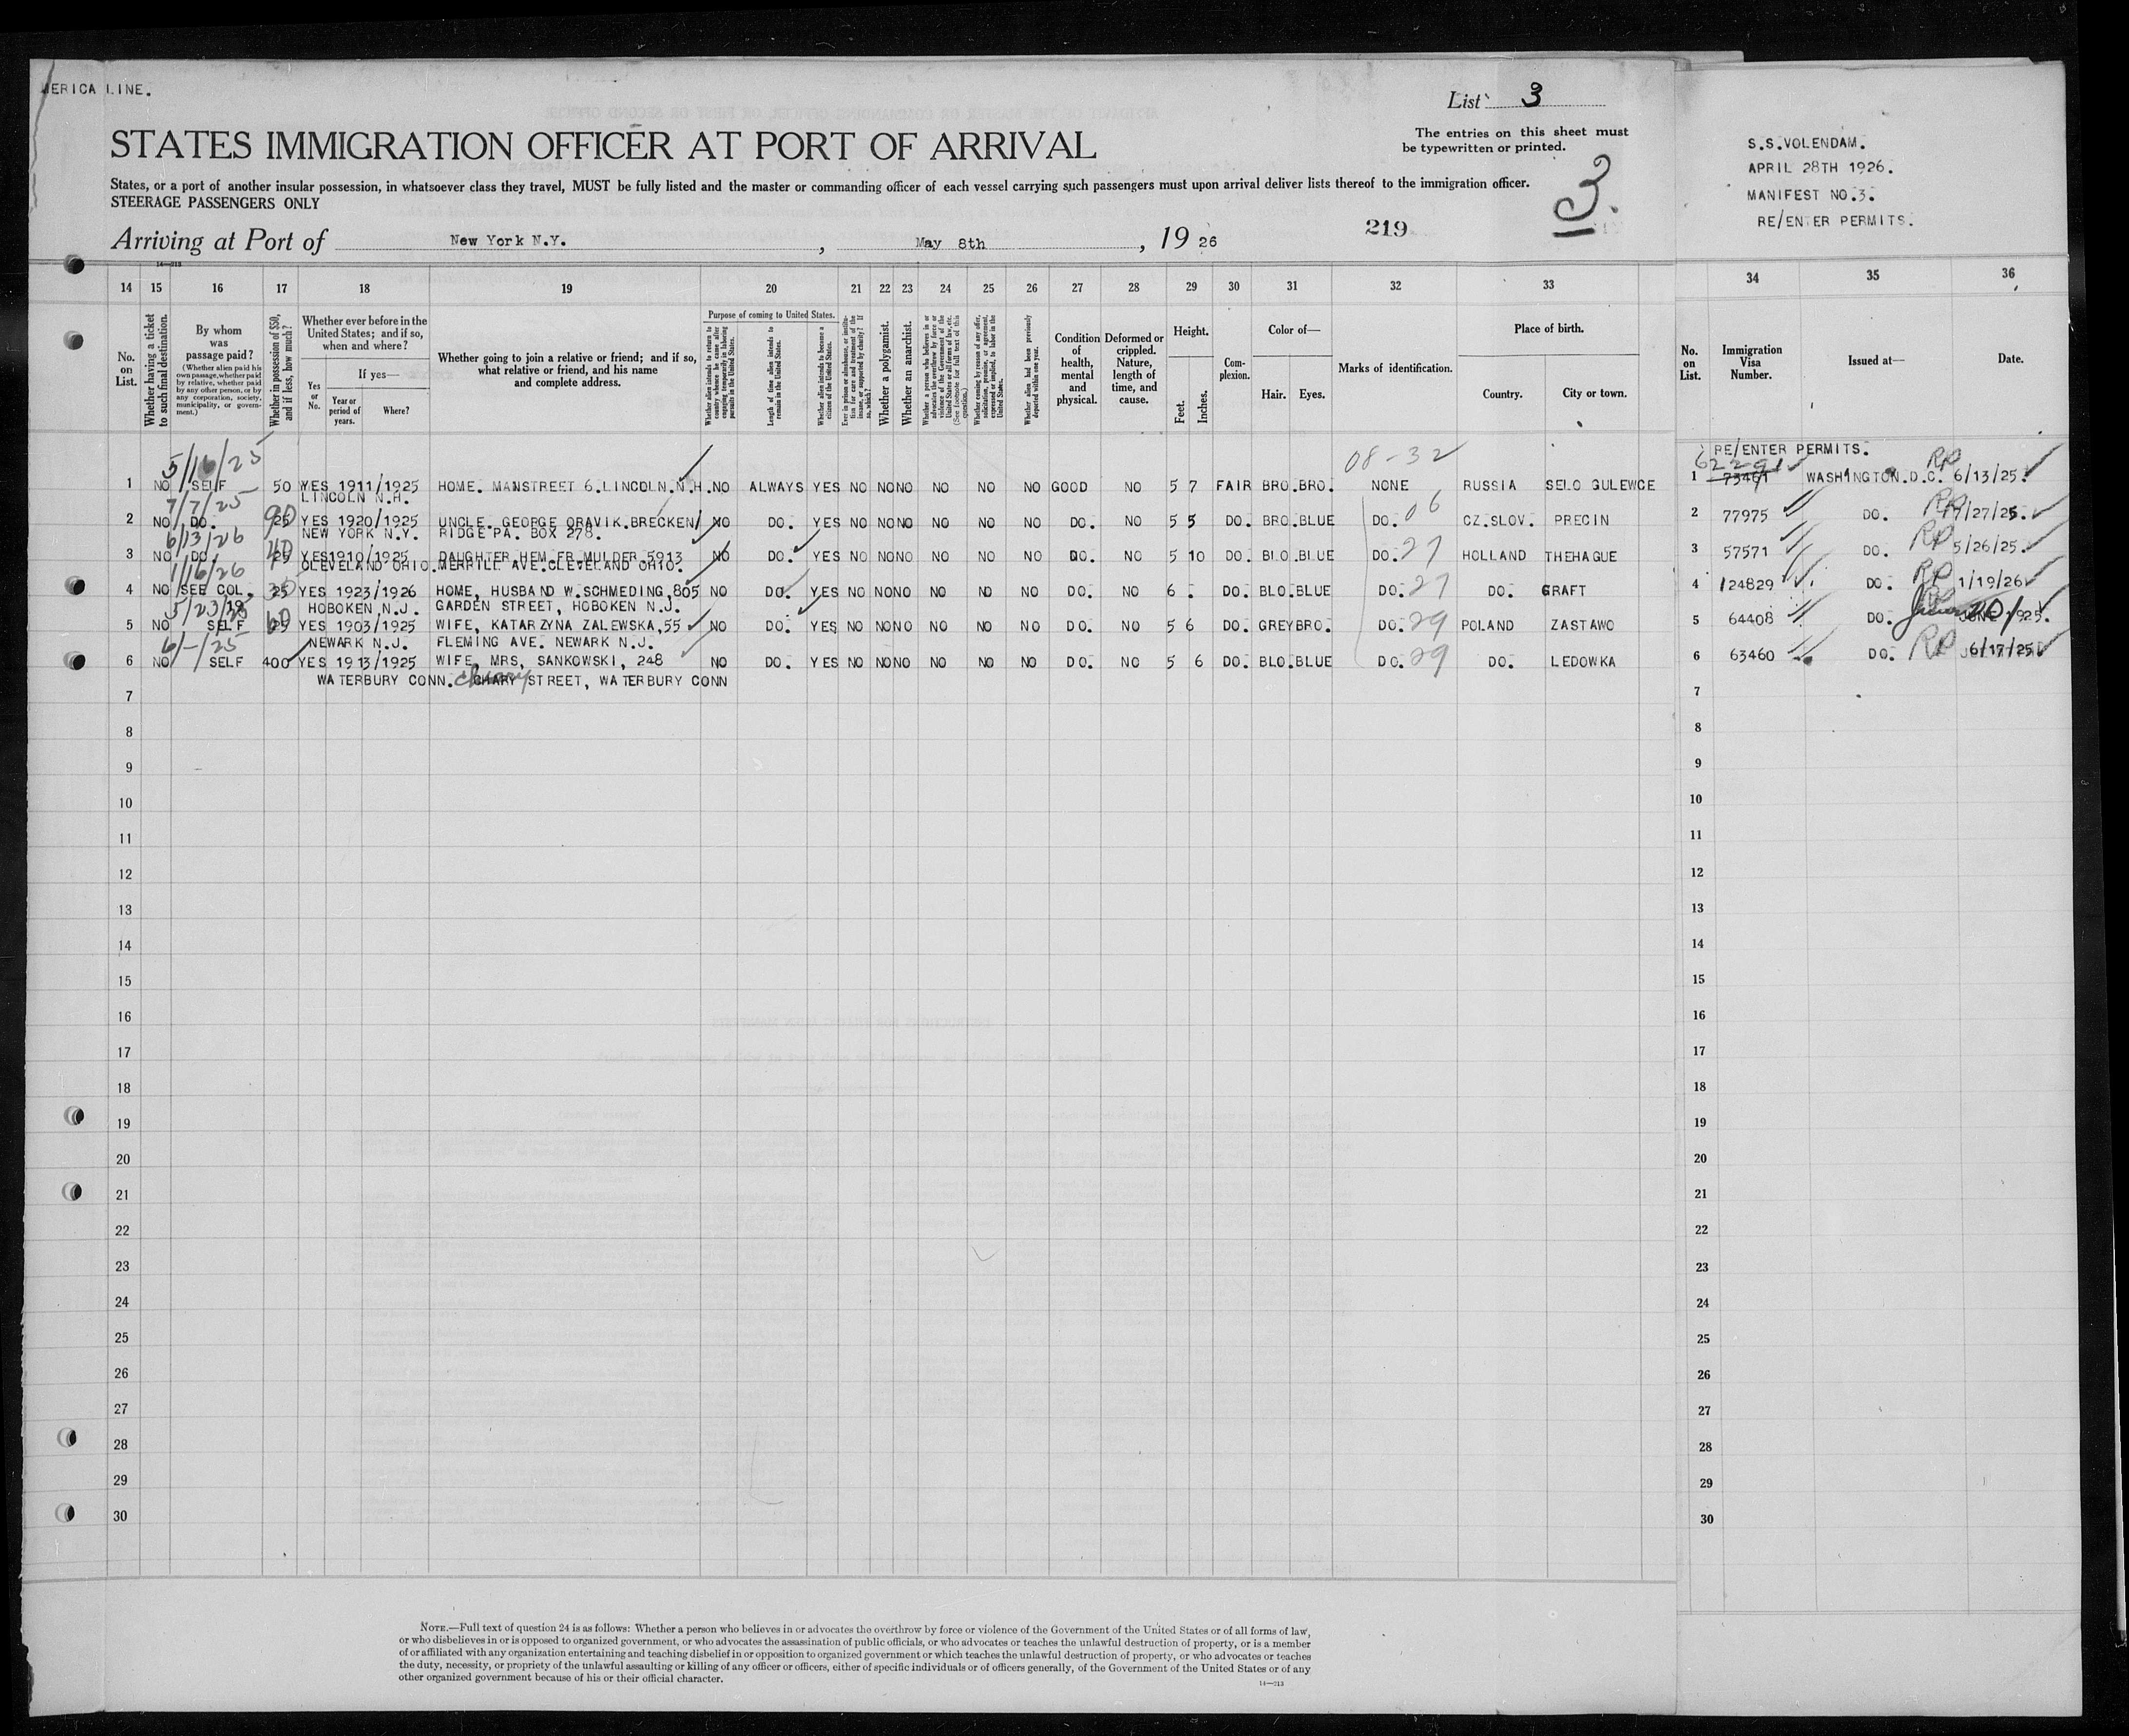 MERICA LINE.
List 3
STATES IMMIGRATION OFFICER AT PORT OF ARRIVAL
The entries on this sheet must
be typewritten or printed.
States, or a port of another insular possession, in whatsoever class they travel, MUST be fully listed and the master or commanding officer of each vessel carrying such passengers must upon arrival deliver lists thereof to the immigration officer.
STEERAGE PASSENGERS ONLY
3.
219
Arriving at Port of New York N.Y. , May 8th , 19 26
S.S.VOLENDAM.
APRIL 28TH 1926.
MANIFEST NO.3.
RE/ENTER PERMITS.
14—213
14 15 16 17 18 19 20 21 22 23 24 25 26 27 28 29 30 31 32 33 34 35 36
No. on List.
Whether having a ticket to such final destination.
By whom was passage paid?
(Whether alien paid his own passage, whether paid by relative, whether paid by any other person, or by any corporation, society, municipality, or government.)
Whether in possession of $50, and if less, how much?
Whether ever before in the United States; and if so, when and where?
Yes or No.
If yes—
Year or period of years.
Where?
Whether going to join a relative or friend; and if so, what relative or friend, and his name and complete address.
Purpose of coming to United States.
Whether alien intends to return to country whence he came after engaging temporarily in laboring pursuits in the United States.
Length of time alien intends to remain in the United States.
Whether alien intends to become a citizen of the United States.
Ever in prison or almshouse, or institution for care and treatment of the insane, or supported by charity? If so, which?
Whether a polygamist.
Whether an anarchist.
Whether a person who believes in or advocates the overthrow by force or violence of the Government of the United States or of all forms of law, etc. (See footnote for full text of this question.)
Whether coming by reason of any offer, solicitation, promise, or agreement, expressed or implied, to labor in the United States.
Whether alien had been previously deported within one year.
Condition of health, mental and physical.
Deformed or crippled. Nature, length of time, and cause.
Height.
Feet. Inches.
Complexion.
Color of—
Hair. Eyes.
Marks of identification.
Place of birth.
Country. City or town.
No. on List.
Immigration Visa Number.
Issued at—
Date.
RE/ENTER PERMITS.
5/16/25 08-32 62291 RP
1 NO SELF 50 YES 1911/1925 HOME. MANSTREET 6.LINCOLN.N.H. NO ALWAYS YES NO NO NO NO NO NO GOOD NO 5 7 FAIR BRO.BRO. NONE RUSSIA SELO GULEWCE 1 73461 WASHINGTON.D.C. 6/13/25.
7/7/25 LINCOLN N.H.
2 NO DO. 25 90 YES 1920/1925 UNCLE. GEORGE ORAVIK.BRECKEN/ NO DO. YES NO NO NO NO NO NO DO. NO 5 5 DO. BRO.BLUE DO. 06 CZ.SLOV. PRECIN 2 77975 DO. RP 7/27/25.
6/13/26 NEW YORK N.Y. RIDGE PA. BOX 278.
3 NO DO. 25 YES 1910/1925 DAUGHTER HEM FR MULDER 5913 NO DO. YES NO NO NO NO NO NO DO. NO 5 10 DO. BLO.BLUE DO. 27 HOLLAND THEHAGUE 3 57571 DO. RP 5/26/25.
1/16/26 CLEVELAND OHIO. MERRILL AVE.CLEVELAND OHIO.
4 NO SEE COL. 25 YES 1923/1926 HOME, HUSBAND W.SCHMEDING,805 NO DO. YES NO NO NO NO NO NO DO. NO 6 . DO. BLO.BLUE DO. 27 DO. GRAFT 4 124829 DO. RP 1/19/26
5/23/25 19 HOBOKEN N.J. GARDEN STREET, HOBOKEN N.J.
5 NO SELF 25 60 YES 1903/1925 WIFE, KATARZYNA ZALEWSKA,55 NO DO. YES NO NO NO NO NO NO DO. NO 5 6 DO. GREY BRO. DO. 29 POLAND ZASTAWO 5 64408 DO. JUNE 1925.
6/-/25 NEWARK N.J. FLEMING AVE. NEWARK N.J.
6 NO SELF 400 YES 1913/1925 WIFE, MRS, SANKOWSKI, 248 NO DO. YES NO NO NO NO NO NO DO. NO 5 6 DO. BLO.BLUE DO. 29 DO. LEDOWKA 6 63460 DO. RP 6/17/25
WATERBURY CONN. CHARY STREET, WATERBURY CONN
7 7
8 8
9 9
10 10
11 11
12 12
13 13
14 14
15 15
16 16
17 17
18 18
19 19
20 20
21 21
22 22
23 23
24 24
25 25
26 26
27 27
28 28
29 29
30 30
NOTE.—Full text of question 24 is as follows: Whether a person who believes in or advocates the overthrow by force or violence of the Government of the United States or of all forms of law,
or who disbelieves in or is opposed to organized government, or who advocates the assassination of public officials, or who advocates or teaches the unlawful destruction of property, or is a member
of or affiliated with any organization entertaining and teaching disbelief in or opposition to organized government or which teaches the unlawful destruction of property, or who advocates or teaches
the duty, necessity, or propriety of the unlawful assaulting or killing of any officer or officers, either of specific individuals or of officers generally, of the Government of the United States or of any
other organized government because of his or their official character.
14—213